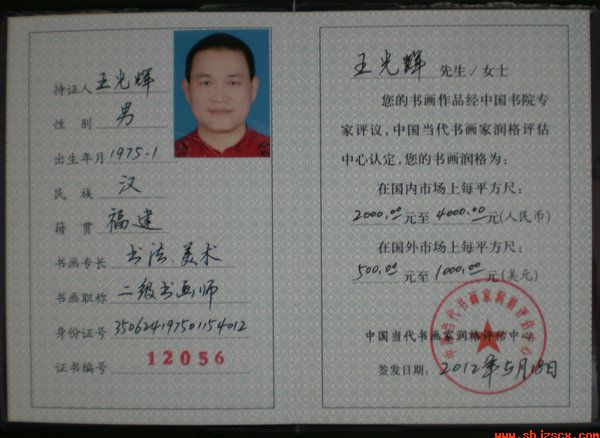 持证人 王光辉
性别 男
出生年月 1975-1
民族 汉
籍贯 福建
书画专长 书法.美术
书画职称 二级书画师
身份证号 350624197501154012
证书编号 12056
王光辉 先生/女士
您的书画作品经中国书院专
家评议,中国当代书画家润格评估
中心认定,您的书画润格为:
在国内市场上每平方尺:
2000.00元至4000.00元(人民币)
在国外市场上每平方尺:
500.00元至1000.00元(美元)
中国当代书画家润格评估中心
签发日期: 2012年5月18日
中国当代书画家润格评估中心
www.shjzscx.com